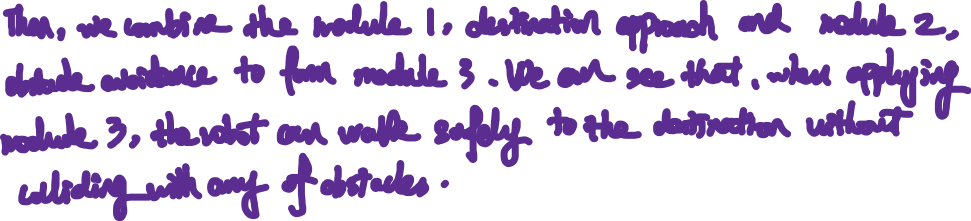 Then, we combine the module 1, destination approach and module 2,
obstacle avoidance to form module 3. We can see that, when applying
module 3, the robot can walk safely to the destination without
colliding with any of obstacles.